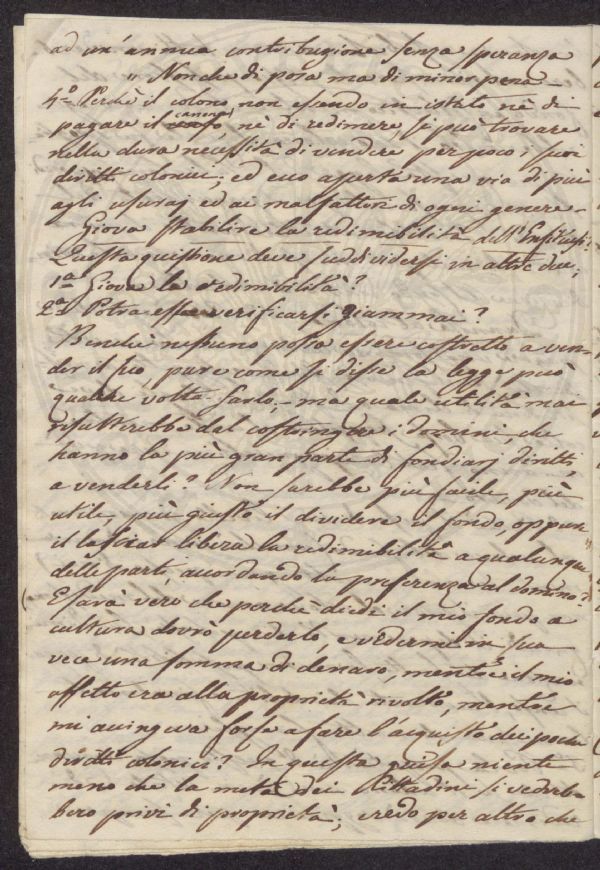 ad un'annua contribuzione senza speranza
" Nonche di posa ma di minor pena —
4.º Perchè il colono non essendo in istato nè di
pagare il censo canone, nè di redimere, si può trovare
nella dura necessità di vendere per poco i suoi
diritti colonici, ed ecco aperta una via di più
agli usuraj ed ai malfattori di ogni genere —
Giova stabilire la redimibilità dell'Enfiteusi:
Questa quistione deve suddividersi in altre due;
1.ª Giova la redimibilità?
2.ª Potrà esse verificarsi giammai?
Benchè nessuno possa essere costretto a ven-
der il suo, pure come si disse la legge può
qualche volta farlo, — ma quale utilità mai
risulterebbe dal costringere i domini, che
hanno la più gran parte di fondiarj diritti,
a venderli? Non sarebbe più facile, più
utile, più giusto il dividere il fondo, oppure
il lasciar libera la redimibilità a qualunque
delle parti, accordando la preferenza al domino?
E sarà vero che perchè diedi il mio fondo a
cultura dovrò perderlo, e vedermi in sua
vece una somma di denaro, mentre il mio
affetto era alla proprietà rivolto, mentre
mi accingeva forse a fare l'acquisto dei pochi
diritti colonici? In questa guisa niente
meno che la metà dei Cittadini si vedreb-
bero privi di proprietà; credo per altro che